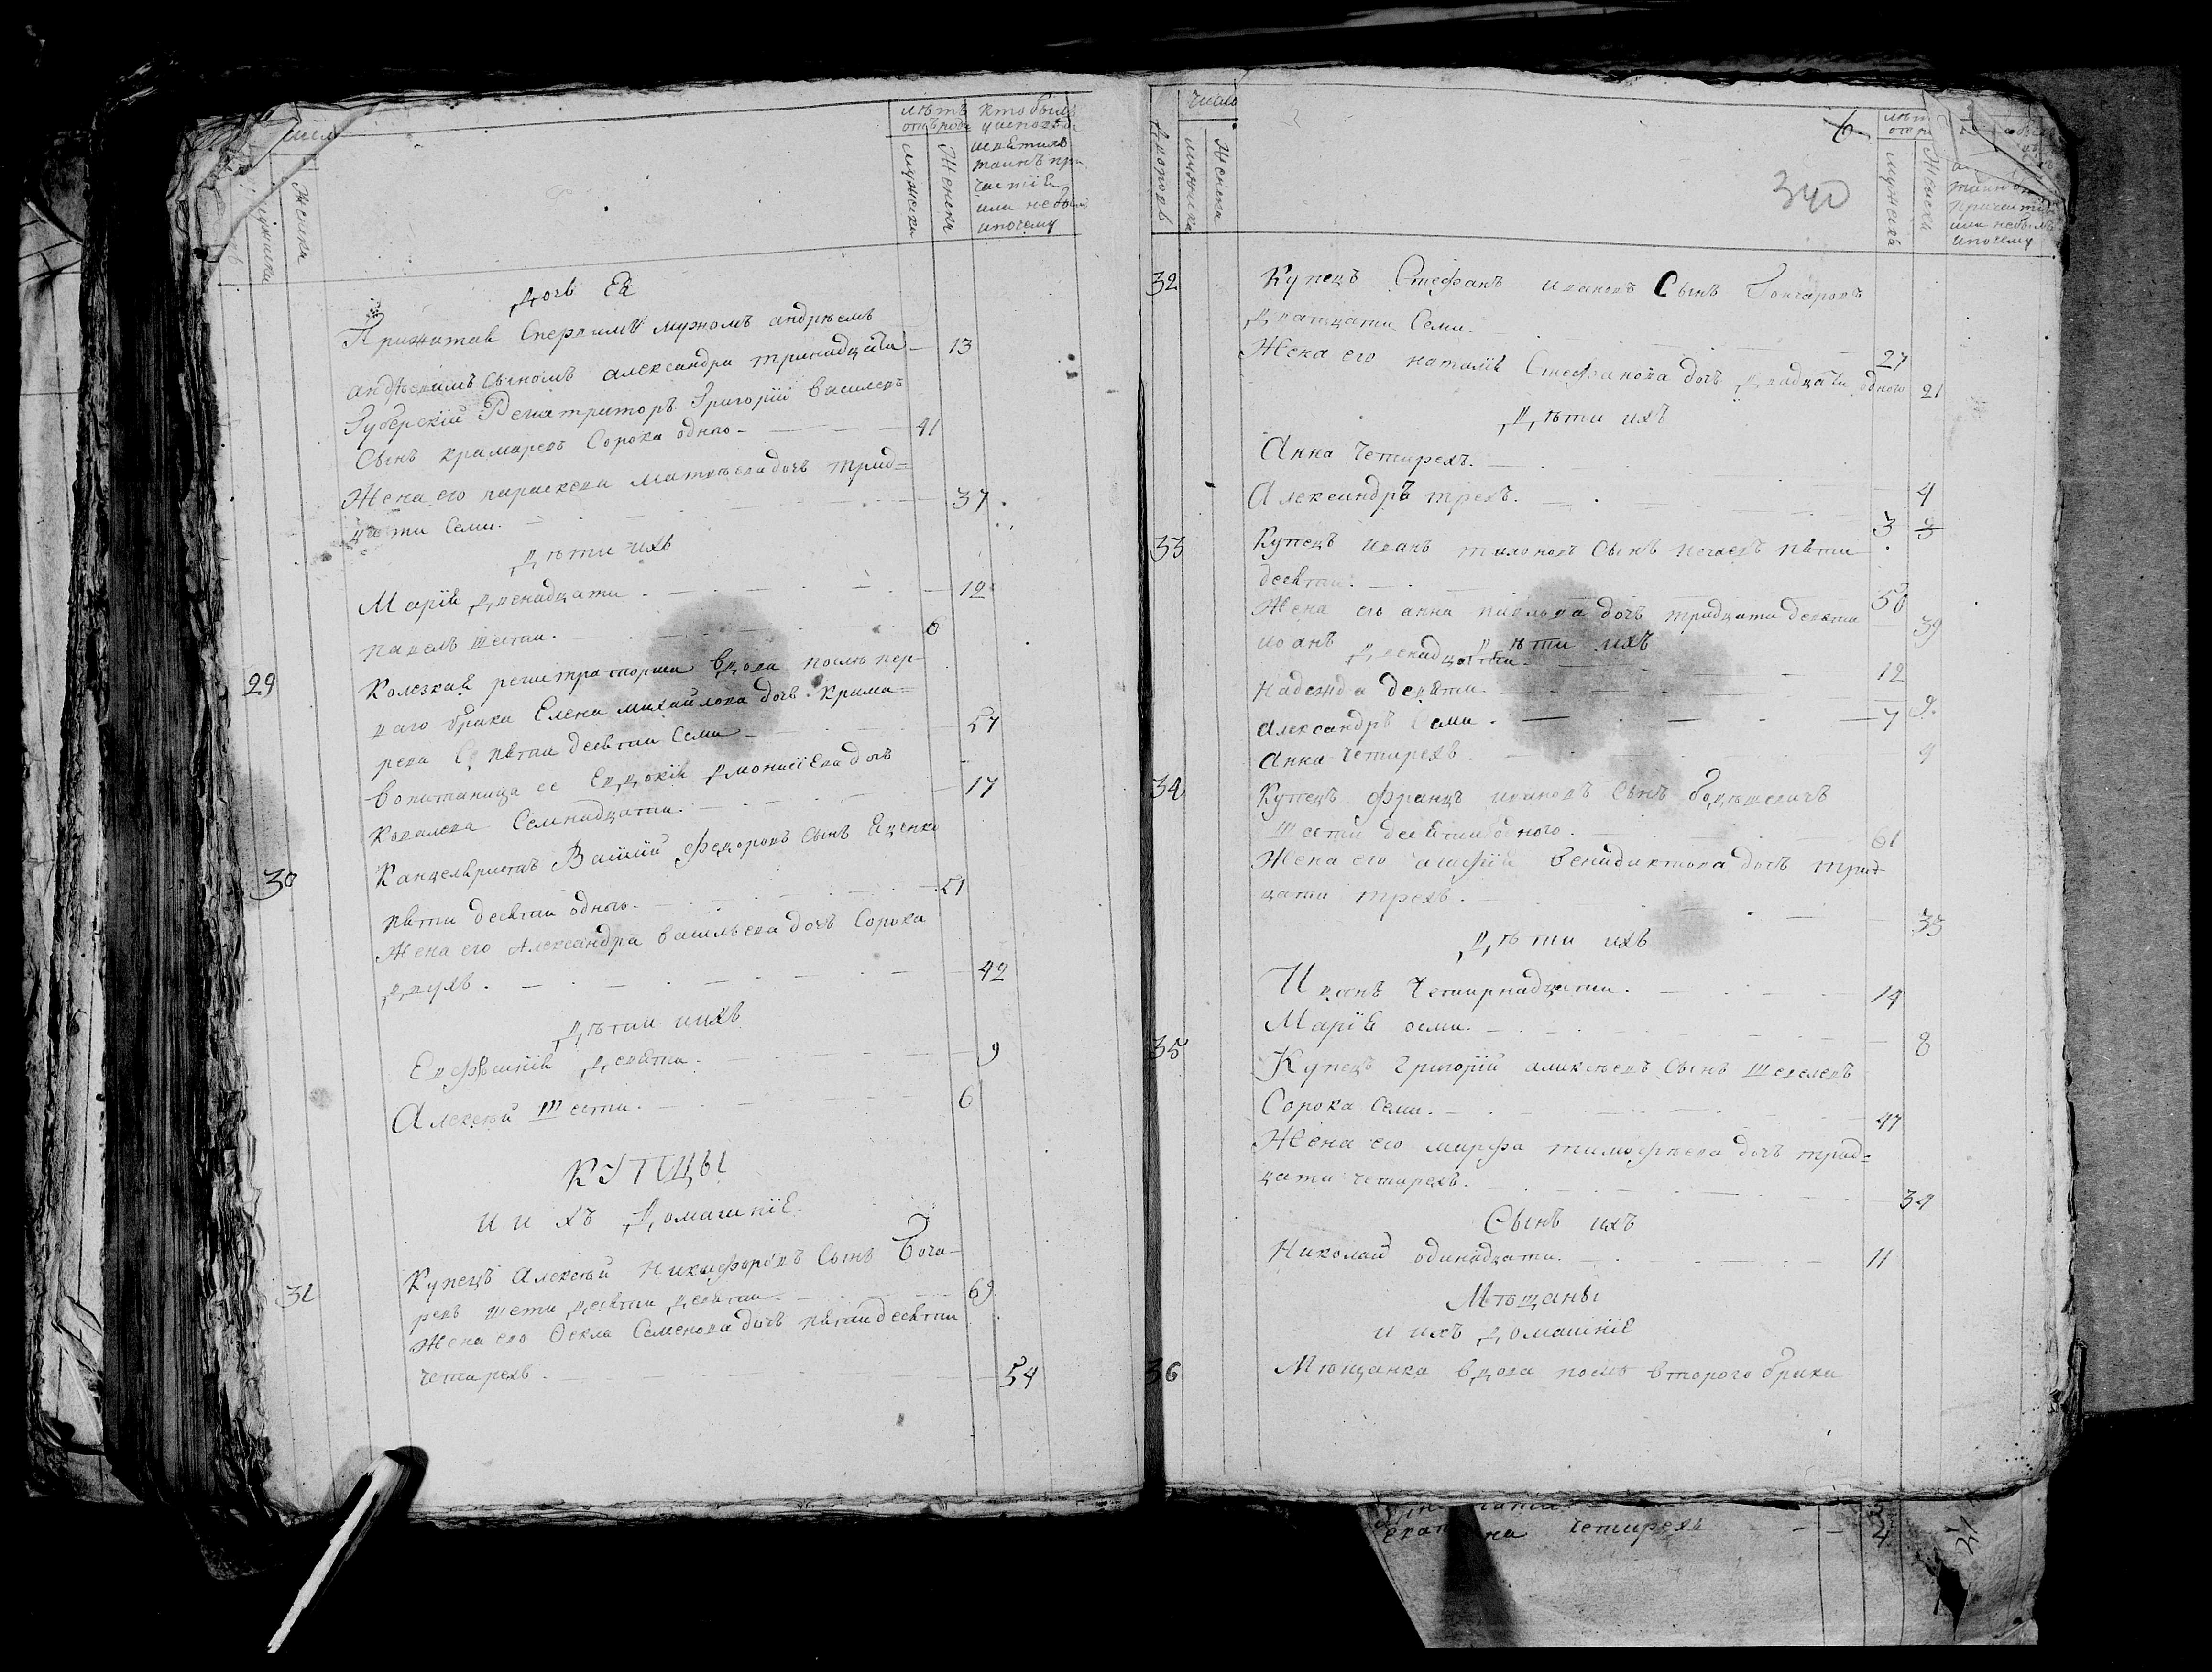 числ
мужеска
Женска
лѣтъ
отъ роду
мужеска
Женска
кто былъ
у исповѣди
исвятыхъ
таинъ при
частїя
или небылъ
ипочему
Дочь Ея
Прижитая Сперьвимъ мужомъ андрѣемъ
андрѣевимъ сыномъ александра тринадцати 13
Губерскїй Регистраторъ Григорїй василевъ
Сынъ крамаревъ Сорока одного 41
Жена его параскева матвѣева дочь трид=
цяти Семи. 37
Дѣти ихъ
Марїя Двенадцати 12
павелъ шести. 6
29 Колезкая регистраторша вдова послѣ пер-
ваго брака Елена михайлова дочь крама=
рева пятидесяти Семи 57
вопитаница ее Евдокїя дионисїева дочь
Ковалева Семнадцати. 17
30 Канцеляристъ Василїй Федоровъ сынъ Яценко
пятидесяти одного. 51
Жена его Александра васильева дочь Сорока
Двухъ. 42
Дѣти иихъ
Евфѣмїя Девяти. 9
Алексѣй Шести. 6
КУПЦЫ
И И ХЪ Домашнїе
31 Купецъ Алексѣй Никифоровъ Сынъ Боча-
ревъ шести десяти девяти 69
Жена его Фекла Семенова дочь пятидесяти
четирехъ. 54
число
дворовъ
мужеска
Женска
6
340
лѣт
мужеска
Женска
таинъ
причастїя
или небылъ
ипочему
32 Купецъ Стефанъ ивановъ Сынъ Гончаровъ
Дватцати Семи. 27
Жена его наталїя Стефанова дочь Двадцати одного 21
Дѣти ихъ
Анна Четирехъ. 4
Александръ трехъ. 3 3
33 Купецъ иванъ тихоновъ Сынъ нечаевъ пяти
десяти. 50
Жена его анна павлова дочь тридцати девяти 39
Дѣти ихъ
иоанъ Двенадцати. 12
надежда девяти. 9.
александръ Семи. 7
Анна Четирехъ. 4
34 Купецъ Францъ ивановъ Сынъ
Шести десяти одного. 61
Жена его Бенидиктова дочь трит
цати трехъ. 33
Дѣти ихъ
Иванъ Четирнадцати. 14
Марїя осми. 8
35 Купецъ Григорїй аликсѣевъ Сынъ шевелевъ
Сорока Семи. 47
Жена его марфа тимофѣева дочь трид=
цати четирехъ. 34
Сынъ ихъ
Николай одинадцати. 11
Мѣщаны
и ихъ Домашнїе
36 Мѣщанка вдова послѣ второго брака
четирехъ 4